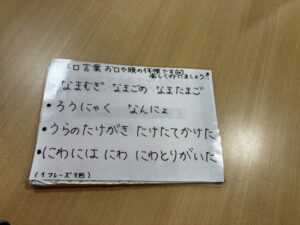 口言葉 お口や頭の体操です
楽しくやりましょう!!
なまむぎ なまごめ なまたまご
• ろうにゃく なんにょ
• うらのたけがき たけたてかけた
• にわには にわ にわとりがいた
(1フレーズ3回)